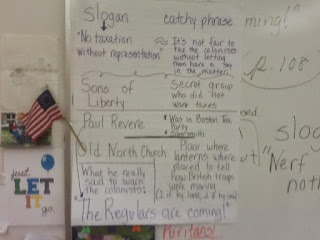 Slogan catchy phrase
"No taxation
without representation"
≈ It's not fair to
tax the colonists
without letting
them have a say
in the matter.
Sons of
Liberty
Secret group
who did not
want taxes
Paul Revere
• Was in Boston Tea
Party
• Silversmith
Old North Church
Place where
lanterns where
placed to tell
how British troops
were moving
(1 if by land, 2 if by sea)
What he really
said to warn
the colonists:
"The Regulars are coming!"
Puritans!
just
LET
IT
go.
ming!"
p. 108
slog
"Nerf
noth